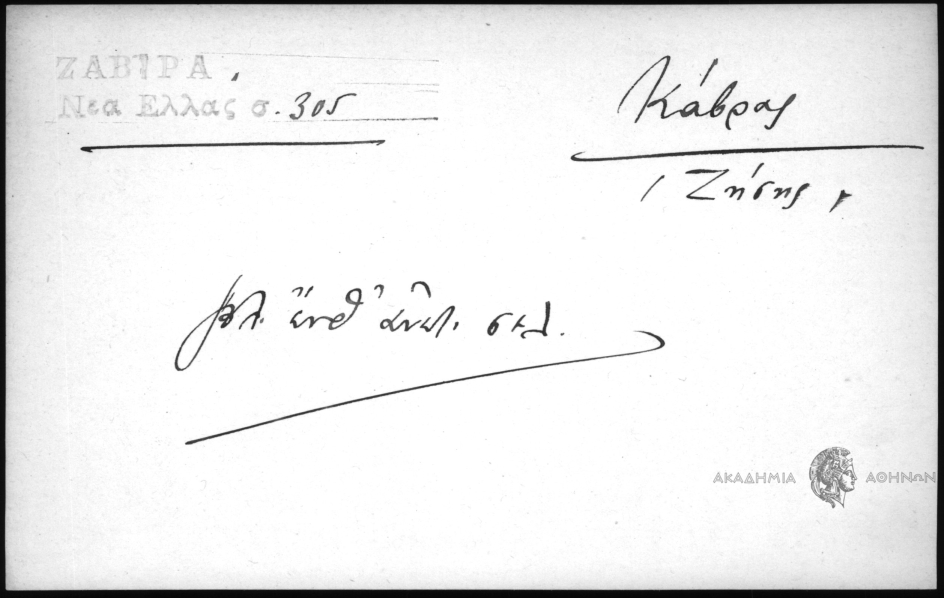 ΖΑΒΙΡΑ.
Νεα Ελλας σ. 305
Κάβρας
Ζήσης
βλ. ἔνθ' ἀνωτ. σελ.
ΑΚΑΔΗΜΙΑ ΑΘΗΝΩΝ